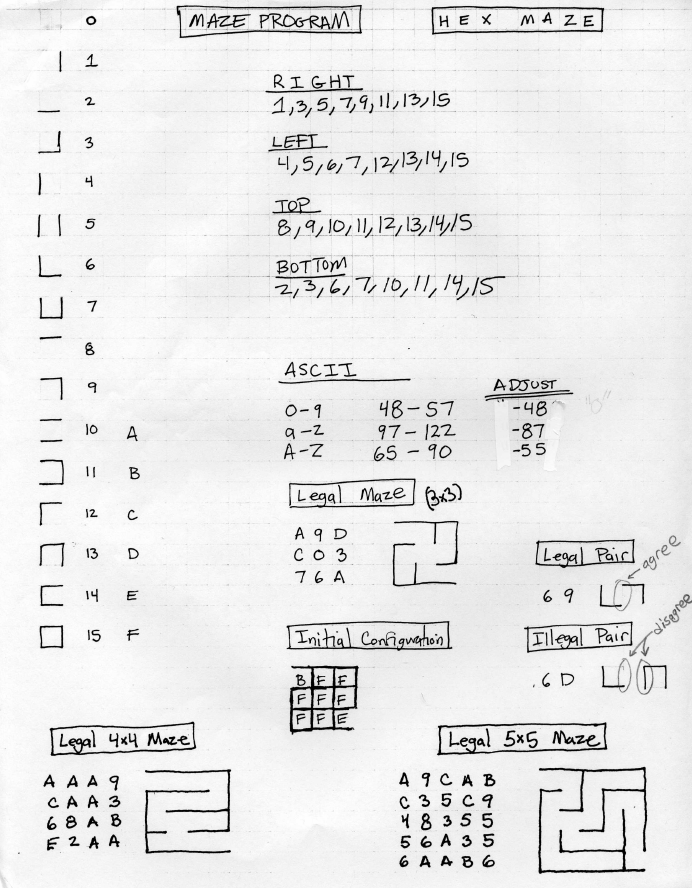 MAZE PROGRAM
HEX MAZE
0
1
2
3
4
5
6
7
8
9
10 A
11 B
12 C
13 D
14 E
15 F
RIGHT
1,3,5,7,9,11,13,15
LEFT
4,5,6,7,12,13,14,15
TOP
8,9,10,11,12,13,14,15
BOTTOM
2,3,6,7,10,11,14,15
ASCII
ADJUST
0-9 48-57 -48
a-z 97-122 -87
A-Z 65-90 -55
Legal Maze (3x3)
A 9 D
C 0 3
7 6 A
Legal Pair
agree
6 9
Illegal Pair
disagree
6 D
Initial Configuration
B F F
F F F
F F E
Legal 4x4 Maze
A A A 9
C A A 3
6 8 A B
E 2 A A
Legal 5x5 Maze
A 9 C A B
C 3 5 C 9
4 8 3 5 5
5 6 A 3 5
6 A A B 6